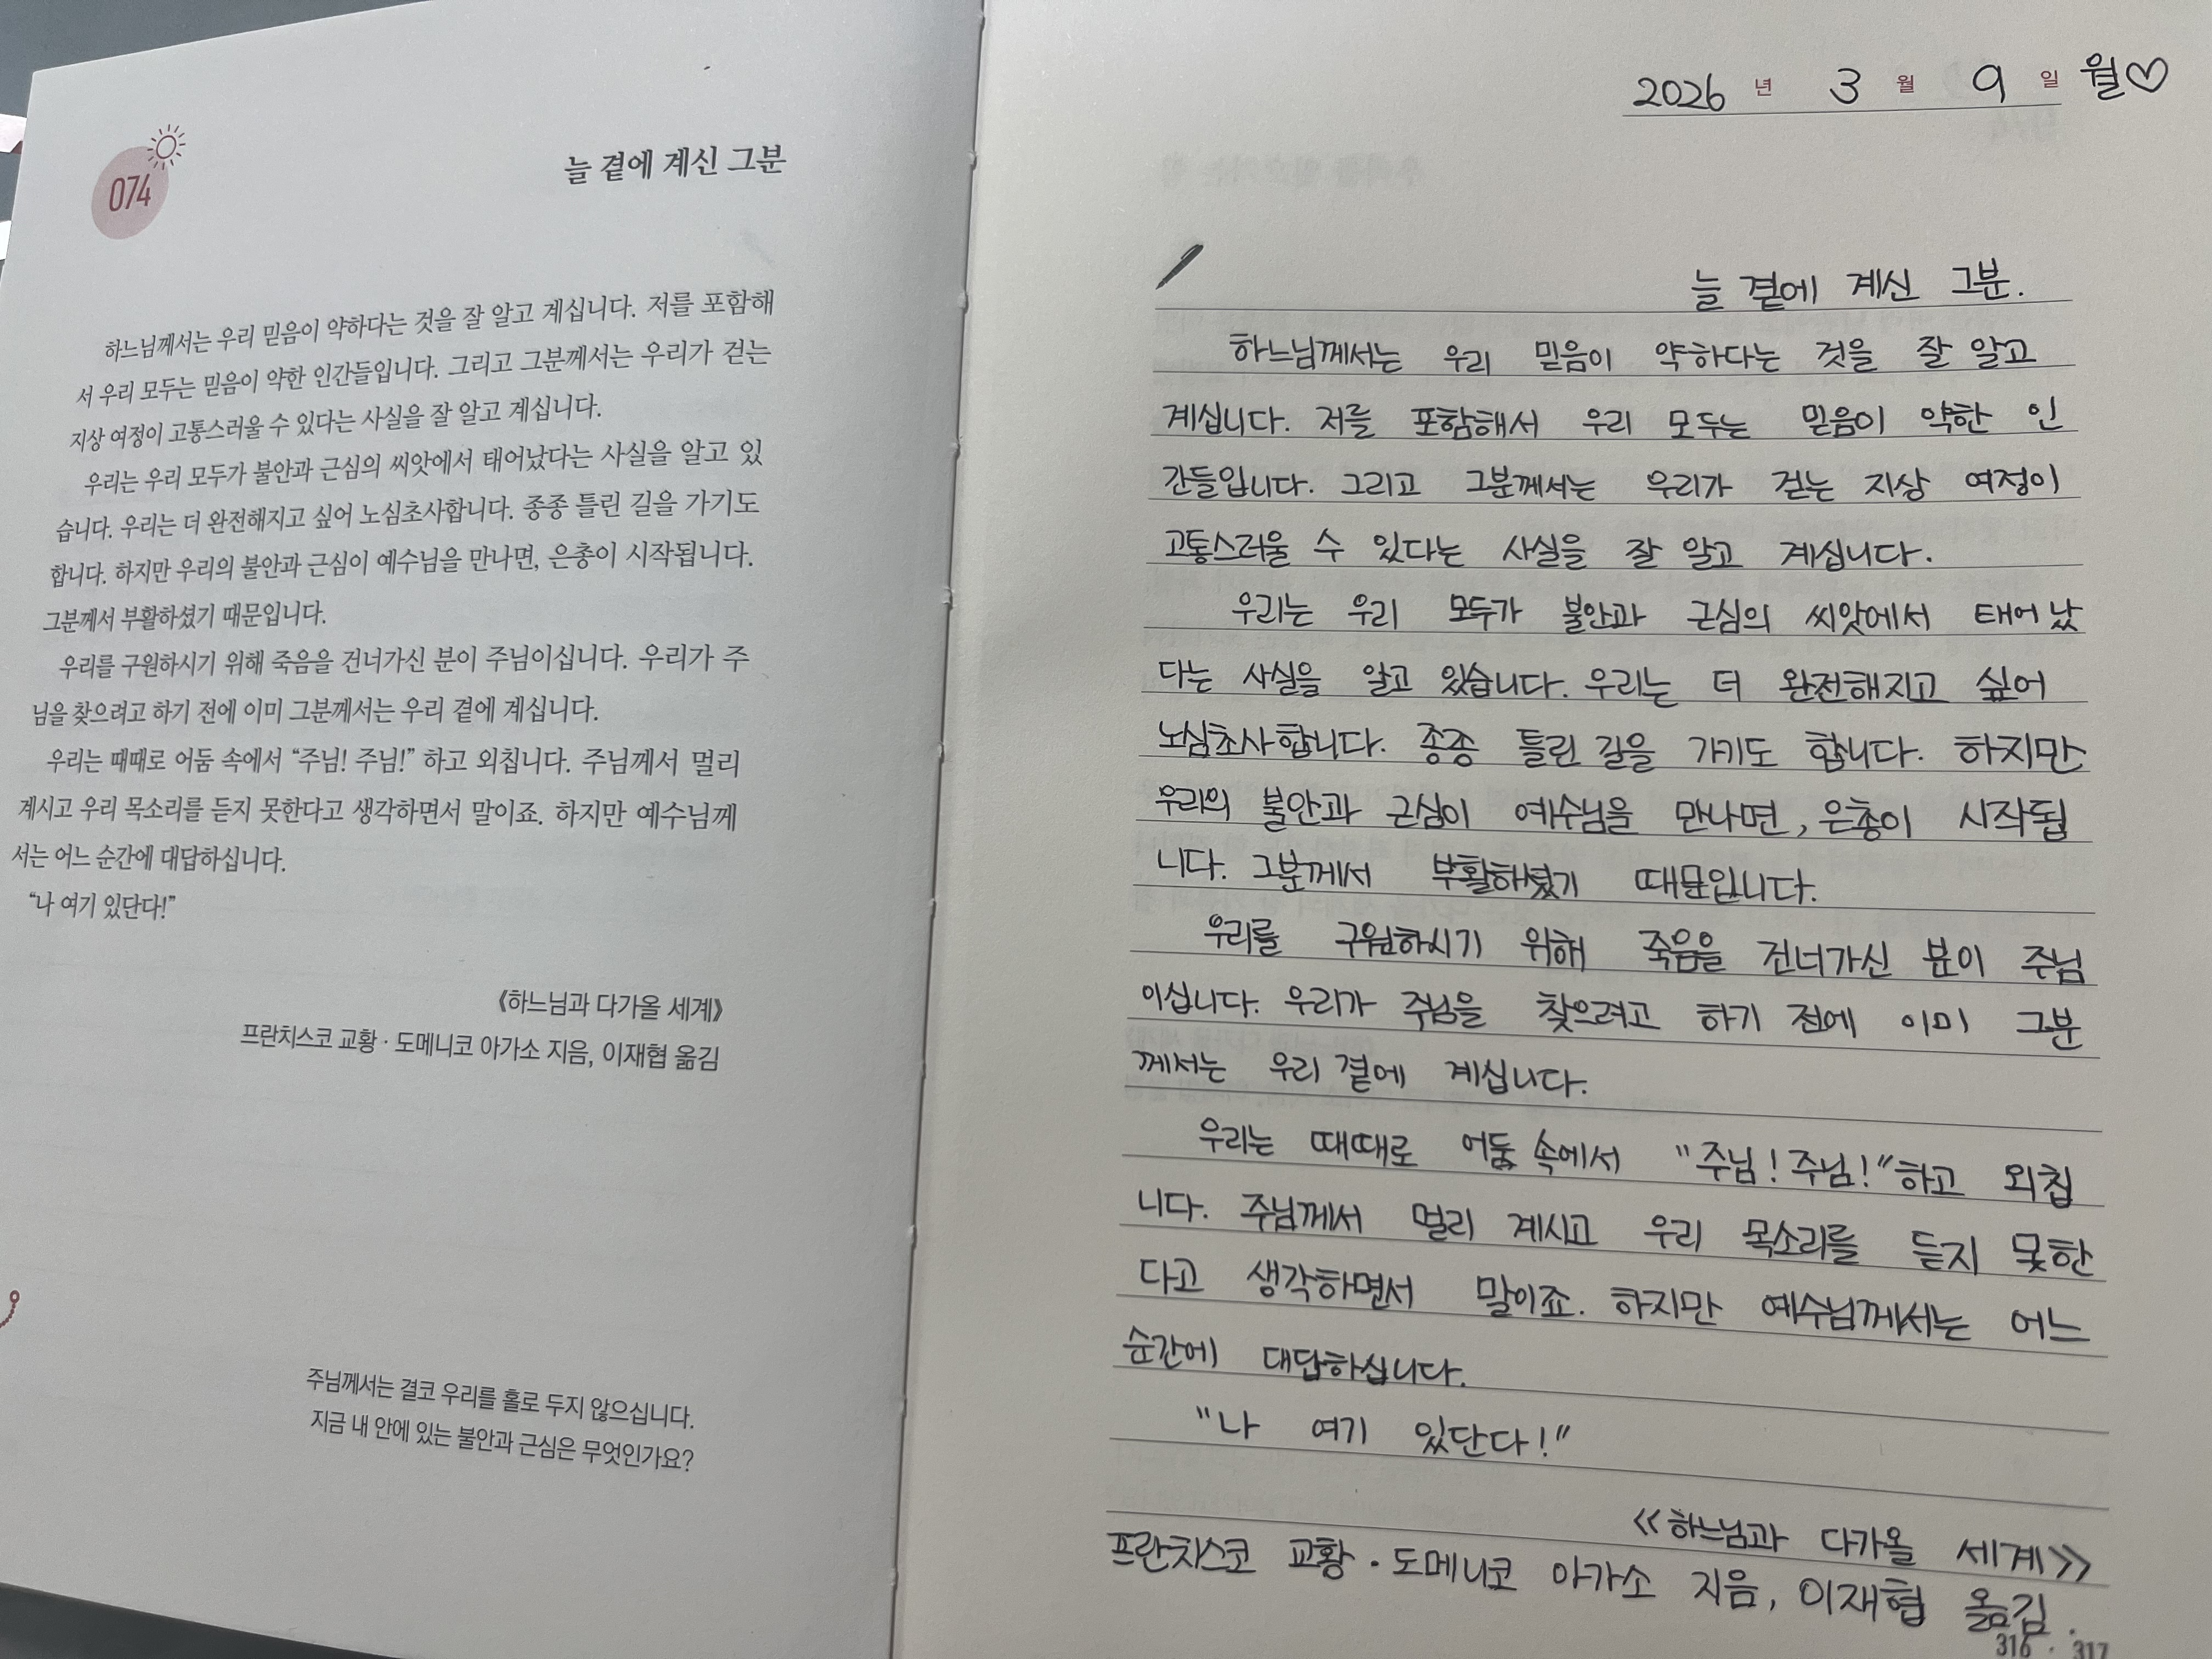 074
늘 곁에 계신 그분
하느님께서는 우리 믿음이 약하다는 것을 잘 알고 계십니다. 저를 포함해
서 우리 모두는 믿음이 약한 인간들입니다. 그리고 그분께서는 우리가 걷는
지상 여정이 고통스러울 수 있다는 사실을 잘 알고 계십니다.
우리는 우리 모두가 불안과 근심의 씨앗에서 태어났다는 사실을 알고 있
습니다. 우리는 더 완전해지고 싶어 노심초사합니다. 종종 틀린 길을 가기도
합니다. 하지만 우리의 불안과 근심이 예수님을 만나면, 은총이 시작됩니다.
그분께서 부활하셨기 때문입니다.
우리를 구원하시기 위해 죽음을 건너가신 분이 주님이십니다. 우리가 주
님을 찾으려고 하기 전에 이미 그분께서는 우리 곁에 계십니다.
우리는 때때로 어둠 속에서 “주님! 주님!” 하고 외칩니다. 주님께서 멀리
계시고 우리 목소리를 듣지 못한다고 생각하면서 말이죠. 하지만 예수님께
서는 어느 순간에 대답하십니다.
“나 여기 있단다!”
《하느님과 다가올 세계》
프란치스코 교황 · 도메니코 아가소 지음, 이재협 옮김
주님께서는 결코 우리를 홀로 두지 않으십니다.
지금 내 안에 있는 불안과 근심은 무엇인가요?
2026 년 3 월 9 일 월♡
늘 곁에 계신 그분.
하느님께서는 우리 믿음이 약하다는 것을 잘 알고
계십니다. 저를 포함해서 우리 모두는 믿음이 약한 인
간들입니다. 그리고 그분께서는 우리가 걷는 지상 여정이
고통스러울 수 있다는 사실을 잘 알고 계십니다.
우리는 우리 모두가 불안과 근심의 씨앗에서 태어났
다는 사실을 알고 있습니다. 우리는 더 완전해지고 싶어
노심초사합니다. 종종 틀린 길을 가기도 합니다. 하지만
우리의 불안과 근심이 예수님을 만나면, 은총이 시작됩
니다. 그분께서 때문입니다.
우리를 구원하시기 위해 죽음을 건너가신 분이 주님
이십니다. 우리가 주님을 찾으려고 하기 전에 이미 그분
께서는 우리 곁에 계십니다.
우리는 때때로 어둠 속에서 "주님! 주님!" 하고 외칩
니다. 주님께서 멀리 계시고 우리 목소리를 듣지 못한
다고 생각하면서 말이죠. 하지만 예수님께서는 어느
순간에 대답하십니다.
"나 여기 있단다!"
<<하느님과 다가올 세계>>
프란치스코 교황 · 도메니코 아가소 지음, 이재협 옮김.
316 · 317